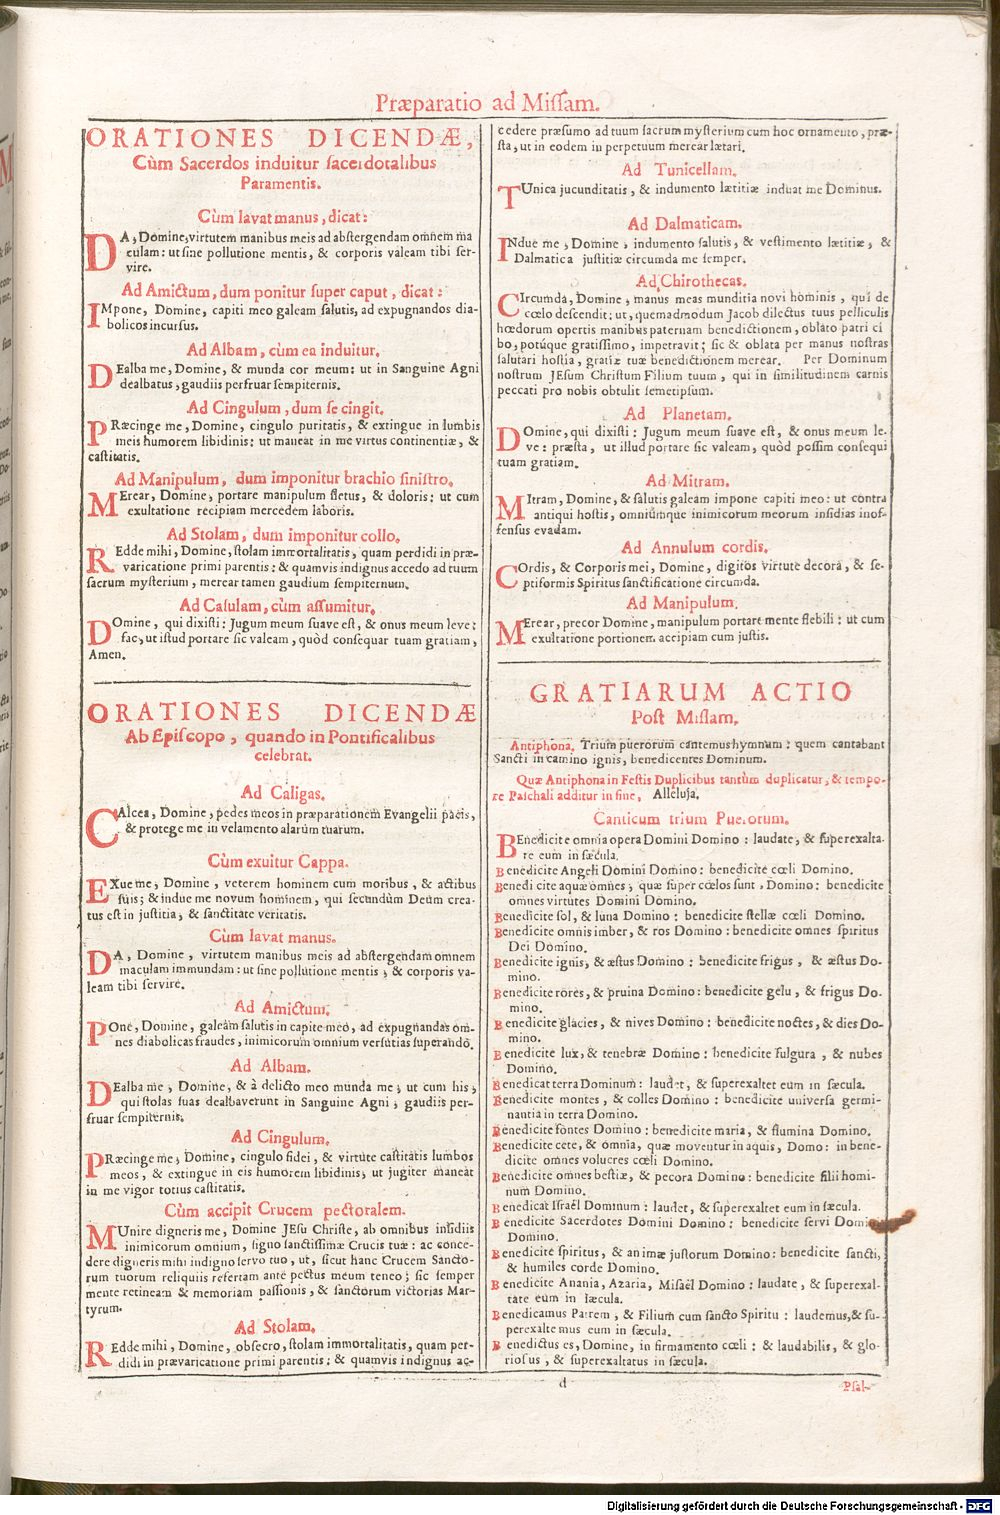 Præparatio ad Missam.
ORATIONES DICENDÆ,
Cùm Sacerdos induitur sacerdotalibus
Paramentis.
Cùm lavat manus, dicat:
DA, Domine, virtutem manibus meis ad abstergendam omnem ma
culam: ut sine pollutione mentis, & corporis valeam tibi ser-
vire.
Ad Amictum, dum ponitur super caput, dicat:
IMpone, Domine, capiti meo galeam salutis, ad expugnandos dia-
bolicos incursus.
Ad Albam, cùm ea induitur.
DEalba me, Domine, & munda cor meum: ut in Sanguine Agni
dealbatus, gaudiis perfruar sempiternis.
Ad Cingulum, dum se cingit.
PRæcinge me, Domine, cingulo puritatis, & extingue in lumbis
meis humorem libidinis; ut maneat in me virtus continentiæ, &
castitatis.
Ad Manipulum, dum imponitur brachio sinistro.
MErear, Domine, portare manipulum fletus, & doloris: ut cum
exultatione recipiam mercedem laboris.
Ad Stolam, dum imponitur collo.
REdde mihi, Domine, stolam immortalitatis, quam perdidi in præ-
varicatione primi parentis: & quamvis indignus accedo ad tuum
sacrum mysterium, merear tamen gaudium sempiternum.
Ad Casulam, cùm assumitur.
DOmine, qui dixisti: Jugum meum suave est, & onus meum leve:
fac, ut istud portare sic valeam, quòd consequar tuam gratiam,
Amen.
ORATIONES DICENDÆ
Ab Episcopo, quando in Pontificalibus
celebrat.
Ad Caligas.
CAlcea, Domine, pedes meos in præparationem Evangelii pacis,
& protege me in velamento alarum tuarum.
Cùm exuitur Cappa.
EXue me, Domine, veterem hominem cum moribus, & actibus
suis; & indue me novum hominem, qui secundùm Deum crea-
tus est in justitia, & sanctitate veritatis.
Cùm lavat manus.
DA, Domine, virtutem manibus meis ad abstergendam omnem
maculam immundam: ut sine pollutione mentis, & corporis va-
leam tibi servire.
Ad Amictum.
POne, Domine, galeam salutis in capite meo, ad expugnandas om-
nes diabolicas fraudes, inimicorum omnium versutias superando.
Ad Albam.
DEalba me, Domine, & à delicto meo munda me, ut cum his,
qui stolas suas dealbaverunt in Sanguine Agni, gaudiis per-
fruar sempiternis.
Ad Cingulum.
PRæcinge me, Domine, cingulo fidei, & virtute castitatis lumbos
meos, & extingue in eis humorem libidinis, ut jugiter maneat
in me vigor totius castitatis.
Cùm accipit Crucem pectoralem.
MUnire digneris me, Domine JEsu Christe, ab omnibus insidiis
inimicorum omnium, signo sanctissimæ Crucis tuæ: ac conce-
dere digneris mihi indigno servo tuo, ut, sicut hanc Crucem Sancto-
rum tuorum reliquiis refertam ante pectus meum teneo; sic semper
mente retineam & memoriam passionis, & sanctorum victorias Mar-
tyrum.
Ad Stolam.
REdde mihi, Domine, obsecro, stolam immortalitatis, quam per-
didi in prævaricatione primi parentis: & quamvis indignus ac-
cedere præsumo ad tuum sacrum mysterium cum hoc ornamento, præ-
sta, ut in eodem in perpetuum merear lætari.
Ad Tunicellam.
TUnica jucunditatis, & indumento lætitiæ induat me Dominus.
Ad Dalmaticam.
INdue me, Domine, indumento salutis, & vestimento lætitiæ, &
Dalmatica justitiæ circumda me semper.
Ad Chirothecas.
CIrcumda, Domine, manus meas munditia novi hominis, qui de
cœlo descendit; ut, quemadmodum Jacob dilectus tuus pelliculis
hœdorum opertis manibus paternam benedictionem, oblato patri ci
bo, potúque gratissimo, impetravit; sic & oblata per manus nostras
salutari hostia, gratiæ tuæ benedictionem merear. Per Dominum
nostrum JEsum Christum Filium tuum, qui in similitudinem carnis
peccati pro nobis obtulit semetipsum.
Ad Planetam.
DOmine, qui dixisti: Jugum meum suave est, & onus meum le-
ve: præsta, ut illud portare sic valeam, quòd possim consequi
tuam gratiam.
Ad Mitram.
MItram, Domine, & salutis galeam impone capiti meo: ut contra
antiqui hostis, omniumque inimicorum meorum insidias inof-
fensus evadam.
Ad Annulum cordis.
COrdis, & Corporis mei, Domine, digitos virtute decora, & se-
ptiformis Spiritus sanctificatione circumda.
Ad Manipulum.
MErear, precor Domine, manipulum portare mente flebili: ut cum
exultatione portionem accipiam cum justis.
GRATIARUM ACTIO
Post Missam.
Antiphona. Trium puerorum cantemus hymnum: quem cantabant
Sancti in camino ignis, benedicentes Dominum.
Quæ Antiphona in Festis Duplicibus tantùm duplicatur, & tempo-
re Paschali additur in fine, Alleluja.
Canticum trium Puerorum.
BEnedicite omnia opera Domini Domino: laudate, & superexalta-
te eum in sæcula.
Benedicite Angeli Domini Domino: benedicite cœli Domino.
Benedicite aquæ omnes, quæ super cœlos sunt, Domino: benedicite
omnes virtutes Domini Domino.
Benedicite sol, & luna Domino: benedicite stellæ cœli Domino.
Benedicite omnis imber, & ros Domino: benedicite omnes spiritus
Dei Domino.
Benedicite ignis, & æstus Domino: benedicite frigus, & æstus Do-
mino.
Benedicite rores, & pruina Domino: benedicite gelu, & frigus Do-
mino.
Benedicite glacies, & nives Domino: benedicite noctes, & dies Do-
mino.
Benedicite lux, & tenebræ Domino: benedicite fulgura, & nubes
Domino.
Benedicat terra Dominum: laudet, & superexaltet eum in sæcula.
Benedicite montes, & colles Domino: benedicite universa germi-
nantia in terra Domino.
Benedicite fontes Domino: benedicite maria, & flumina Domino.
Benedicite cete, & omnia, quæ moventur in aquis, Domo: in bene-
dicite omnes volucres cœli Domino.
Benedicite omnes bestiæ, & pecora Domino: benedicite filii homi-
num Domino.
Benedicat Israël Dominum: laudet, & superexaltet eum in sæcula.
Benedicite Sacerdotes Domini Domino: benedicite servi Domini
Domino.
Benedicite spiritus, & animæ justorum Domino: benedicite sancti,
& humiles corde Domino.
Benedicite Anania, Azaria, Misaël Domino: laudate, & superexal-
tate eum in sæcula.
Benedicamus Patrem, & Filium cum sancto Spiritu: laudemus, & su-
perexaltemus eum in sæcula.
Benedictus es, Domine, in firmamento cœli: & laudabilis, & glo-
riosus, & superexaltatus in sæcula.
d
Psal-
Digitalisierung gefördert durch die Deutsche Forschungsgemeinschaft - DFG